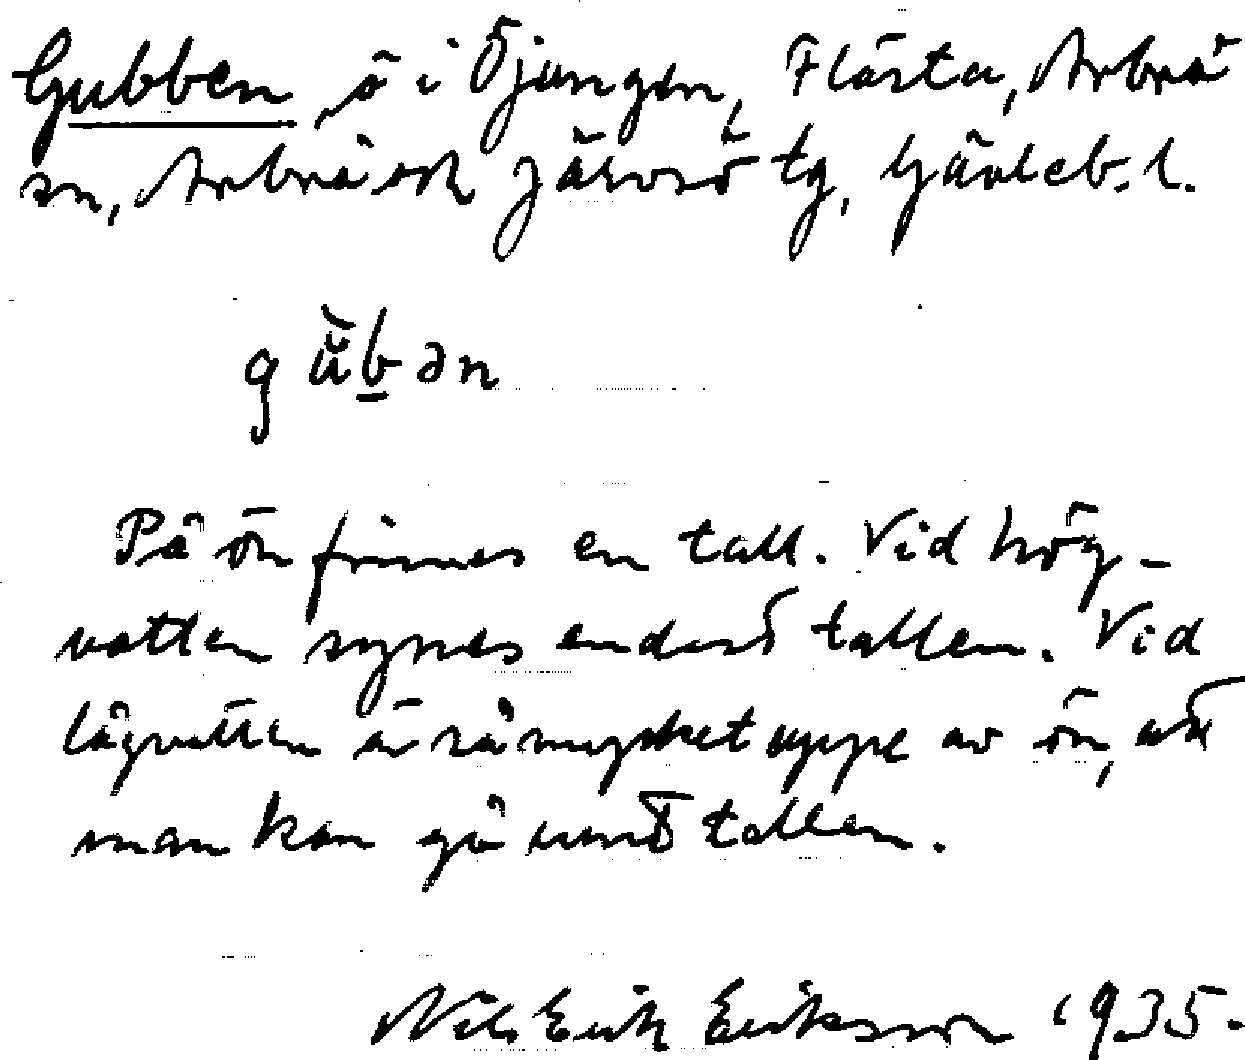 Gubben, ö i Öjungen, Flästa, Arbrå
sn, Arbrå och Järvsö tg, Gävleb. l.
gùbən
På ön finnes en tall. Vid hög-
vatten synes endast tallen. Vid
lågvatten är så mycket uppe av ön, att
man kan gå runt tallen.
Nils Erik Eriksson 1935.